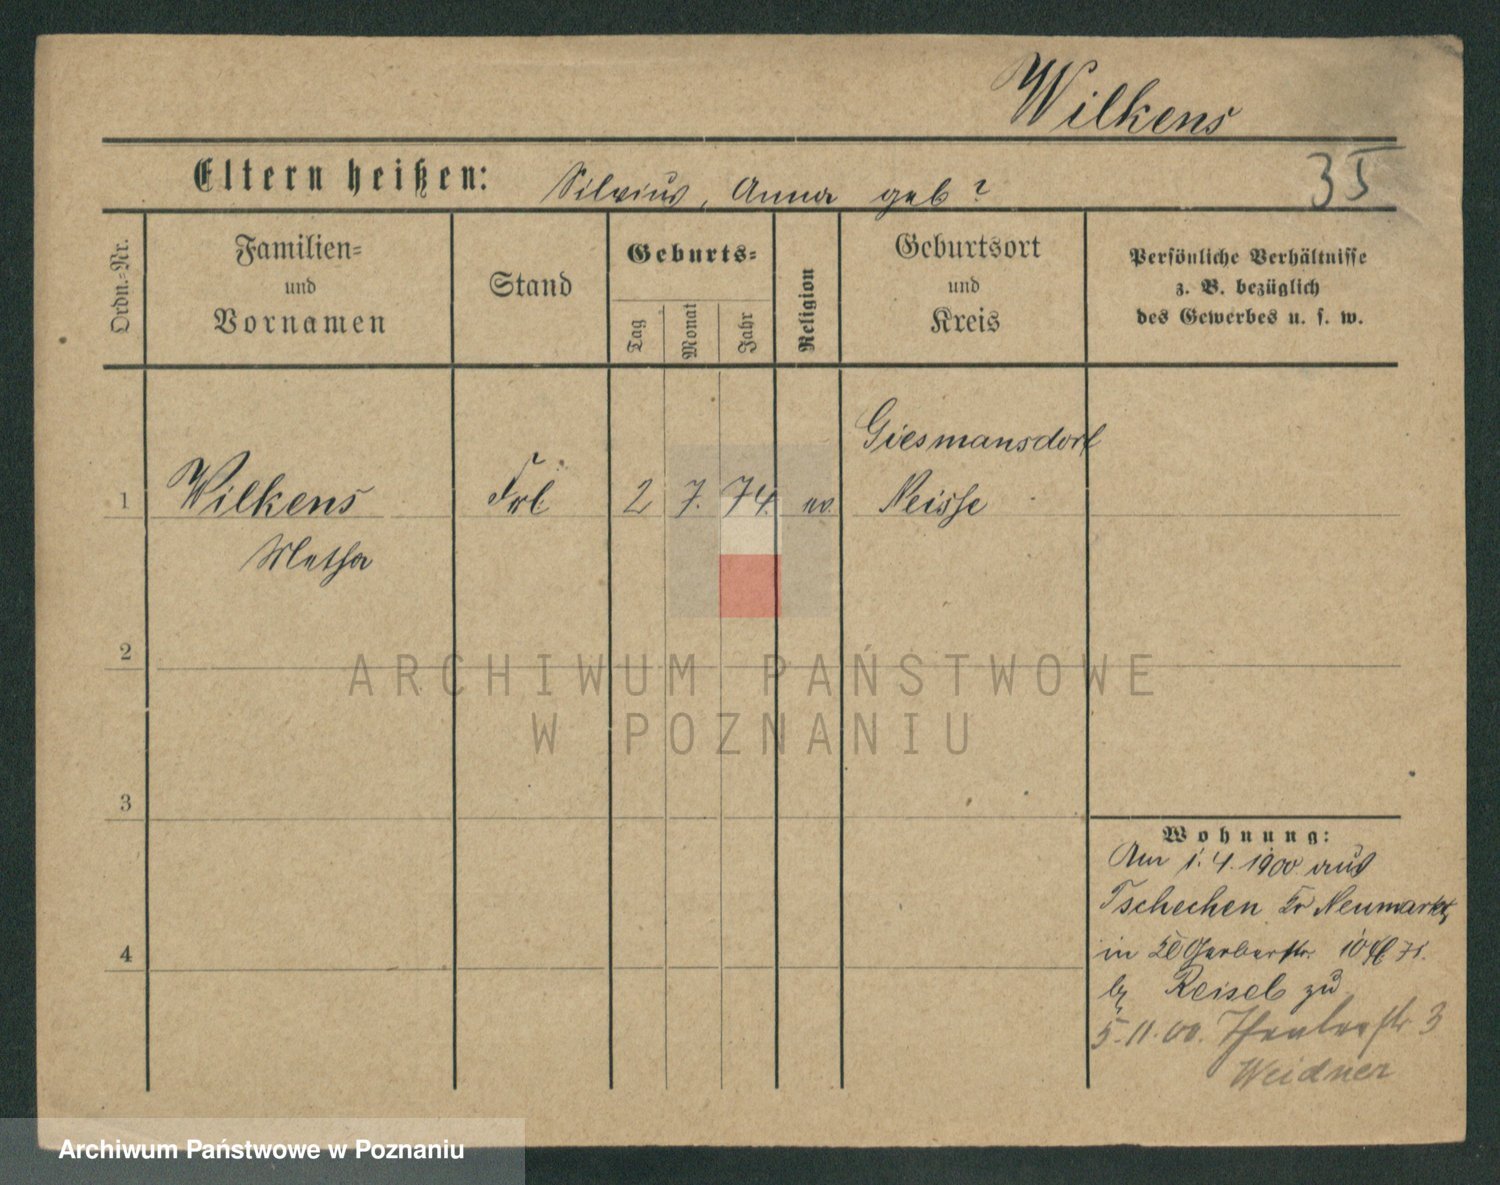 Wilkens
35
Eltern heißen: Silvius, Anna geb ?
Ordn.-Nr.
Familien-
und
Vornamen
Stand
Geburts-
Tag
Monat
Jahr
Religion
Geburtsort
und
Kreis
Persönliche Verhältnisse
z. B. bezüglich
des Gewerbes u. s. w.
Giesmansdorf
1 Wilkens Frl 2 7. 74. ev. Neisse
Metha
2
ARCHIWUM PAŃSTWOWE
W POZNANIU
3
4
Wohnung:
Am 1.4.1900 aus
Tschechen Kr Neumarkt,
in Gerberstr. 10
Reisel zu
5.11.00. Theaterstr 3
Weidner
Archiwum Państwowe w Poznaniu